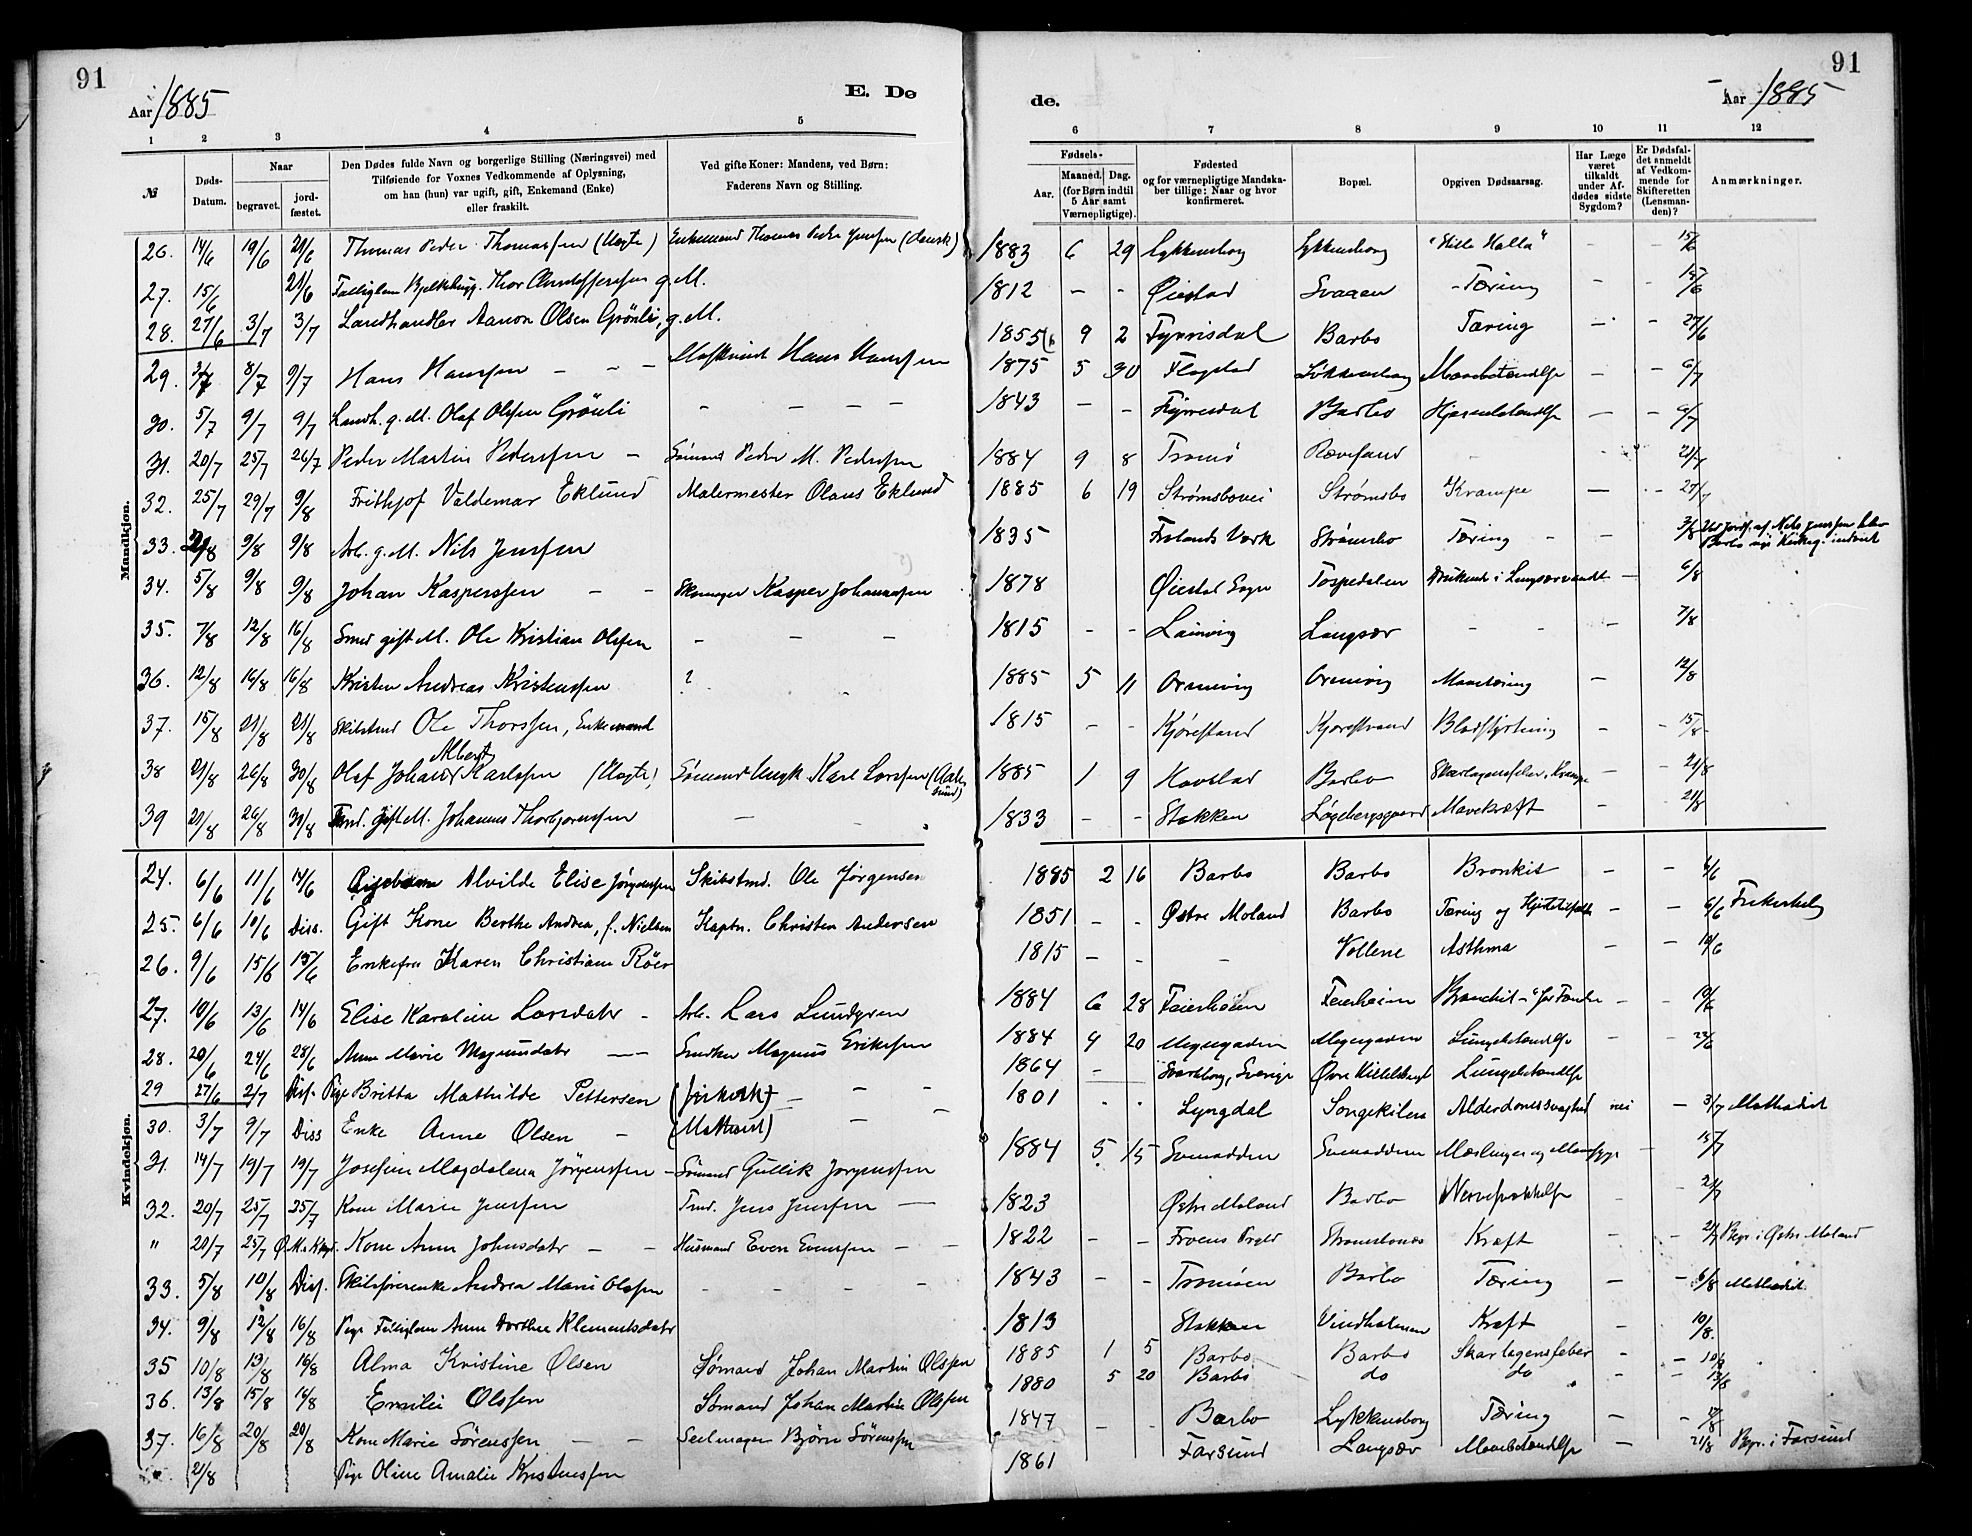 91
91
Aar 1885
E. De
de.
Aar 1885
1 2 3 4 5 6 7 8 9 10 11 12
№
Døds-Datum.
Naar
begravet.
jordfæstet.
Den Dødes fulde Navn og borgerlige Stilling (Næringsvei) med
Tilføiende for Voxnes Vedkommende af Oplysning,
om han (hun) var ugift, gift, Enkemand (Enke)
eller fraskilt.
Ved gifte Koner: Mandens, ved Børn:
Faderens Navn og Stilling.
Fødsels-
Aar.
Maaned. Dag.
(for Børn indtil
5 Aar samt
Værnepligtige).
Fødested
og for værnepligtige Mandskaber tillige: Naar og hvor
konfirmeret.
Bopæl.
Opgiven Dødsaarsag.
Har Læge
været
tilkaldt
under Afdødes sidste
Sygdom?
Er Dødsfaldet anmeldt
af Vedkommende for
Skifteretten
(Lensmanden)?
Anmærkninger.
Mandkjøn.
26. 14/6 19/6 21/6 Thomas Peder Thomassen (Uægte) Enkemand Thomas Peder Jensen (dansk) 1883 6 29 Lykkensborg Lykkensborg 15/6
27. 15/6 21/6 Thor Christoffersen g. M. 1812 - - Øiestad Svaaen Tæring 15/6
28. 27/6 3/7 3/7 Landhandler Aanon Olsen Grönli, g. M. 1855 9 2 Fyrrisdal Barbo Tæring 27/6
29. 3/7 8/7 9/7 Hans Hanssen - - - Maskinist Hans Hanssen 1875 5 30 Flagstad Lykkensborg Mavebetændelse - - 6/7
30. 5/7 9/7 9/7 Landh. g. M. Olaf Olssen Grönli - - - - 1843 - - Fyrresdal Barbo Hjernebetændelse - - 6/7
31. 20/7 25/7 26/7 Peder Martin Pederssen - Sømand Peder M. Pederssen 1884 9 8 Tromø Rævesand - 21/7
32. 25/7 29/7 9/8 Frithjof Valdemar Eklund Malermester Olaus Eklund 1885 6 19 Strømsbovei Strømsbo Krampe - - 27/7
33. 2/8 9/8 9/8 Arb. g. M. Nils Jenssen 1835 Frolands Værk Strømsbo Tæring - - 3/8 Ved Jordf. af Nils Jenssen blev Barbo nye Kirkeg. indviet
34. 5/8 9/8 9/8 Johan Kasperssen - - Skomager Kasper Johannessen 1878 Øiestad Sogn Torpedalen Druknede i Langsævandet - 6/8
35. 7/8 12/8 16/8 Smed gift M. Ole Kristian Olssen - - - 1815 - - Langsæv - - - 7/8
36. 12/8 16/8 16/8 Kristen Andreas Kristenssen ? 1885 5 11 Ormevig Ormevig Mavetæring - 12/8
37. 15/8 21/8 21/8 Skibstmd Ole Thorssen, Enkemand 1815 - - Kjørestrand Blodstyrtning - 15/8
38 21/8 26/8 30/8 Olaf Johan Albert Karlssen (Uægte) Sømand Ungk. Karl Larssen 1885 1 9 Havstad Barbo Skarlagensfeber, Krampe - - 21/8
39 21/8 26/8 30/8 Tmd. Gift M. Johannes Thorbjørnssen - - 1833 - - Stokken Løgebergsgaard Mavekræft - - 21/8
Kvindekjøn.
24. 6/6 11/6 14/6 Pigebarn Alvilde Elise Jörgenssen Skibstmd. Ole Jörgensen 1885 2 16 Barbo Barbo Bronkit - - 6/6
25. 6/6 10/6 Diss. Gift Kone Berthe Andrea, f. Nielsen Kaptn. Christen Andersen 1851 - - Østre Moland Barbo Tæring og - - 6/6 Frikirkelig
26. 9/6 15/6 15/6 Enkefru Karen Christiane Röer 1815 - - - Vollene Asthma - - 10/6
27. 10/6 13/6 14/6 Elise Karoline Larsdatr - Arb. Lars Lundgren 1884 6 28 Feierheien Feierheien - - 10/6
28. 20/6 24/6 28/6 Anna Marie Magnusdatr - Snedker Magnus Erikssen 1884 9 20 Myregaden Myregaden Lungebetændelse - - 23/6
29 27/6 2/7 Diss. Pige Britta Mathilde Pettersen (frikirk) - - - 1864 - Svartborg, Sverige Øvre Kittelsbugt Lungebetændelse
30. 3/7 9/7 Diss Enke Anne Olsen - (Methodist) - - 1801 - - Lyngdal Songekilen Alderdomssvaghed nei - 3/7 Methodist
31. 14/7 19/7 19/7 Josefine Magdalena Jörgenssen - Sömand Gullik Jørgenssen 1884 5 15 Svenodden Svenodden Mæslinger og Mavesyge - 15/7
32. 20/7 25/7 25/7 Kone Marie Jenssen Tmd. Jens Jenssen - 1823 Østre Moland Barbo - - 21/7
" 20/7 25/7 Kone Anne Johnsdatr - - Husmand Even Evenssen - - 1822 - - Froens Prgld Kræft - - 21/7 Begr. i Østre Moland
33. 5/8 10/8 Diss. Skibsførerenke Andrea Marie Olssen - - - - 1843 - - Tromøen Barbo Tæring - - 6/8 Methodist.
34. 9/8 12/8 16/8 Pige Anne Dorthea Klementsdatr 1813 Stokken Vindholmen Kræft - 10/8
35 10/8 13/8 16/8 Alma Kristine Olsen Sømand Johan Martin Olssen 1885 1 5 Barbo Barbo Skarlagensfeber - - 10/8
36. 13/8 15/8 16/8 Emilie Olssen Sømand Johan Martin Olssen 1880 5 20 Barbo do do - - 13/8
37. 16/8 20/8 20/8 Kone Marie Sörenssen - - Seilmager Björn Sörenssen 1847 - - Barbo Lykkensborg Tæring - - 17/8
21/8 Pige Oline Amalie Kristenssen 1861 Farsund Langsæv Mavebetændelse - 21/8 Begr. i Farsund